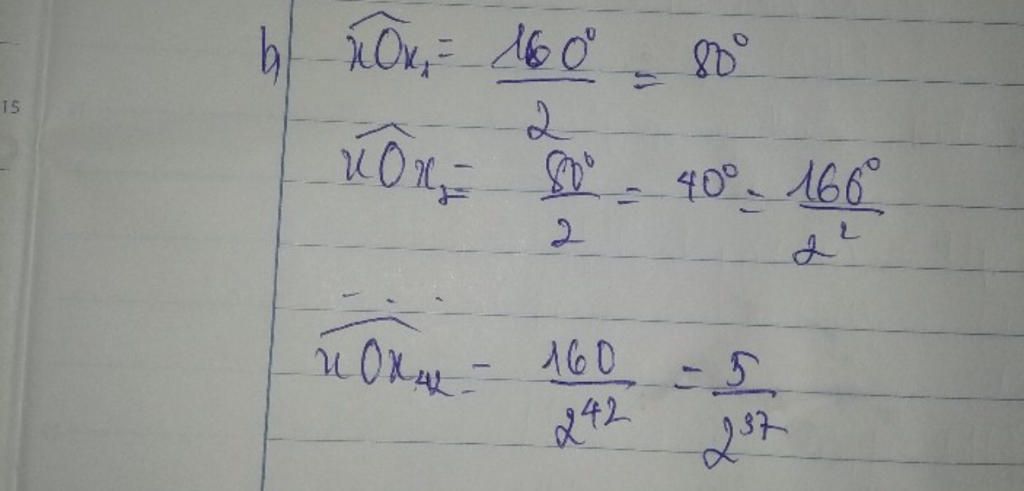 15
b, xOx₁ = 160°/2 = 80°
xOx₂ = 80°/2 = 40° = 160°/2²
- . .
xOx₄₂ = 160/2⁴² = 5/2³⁷